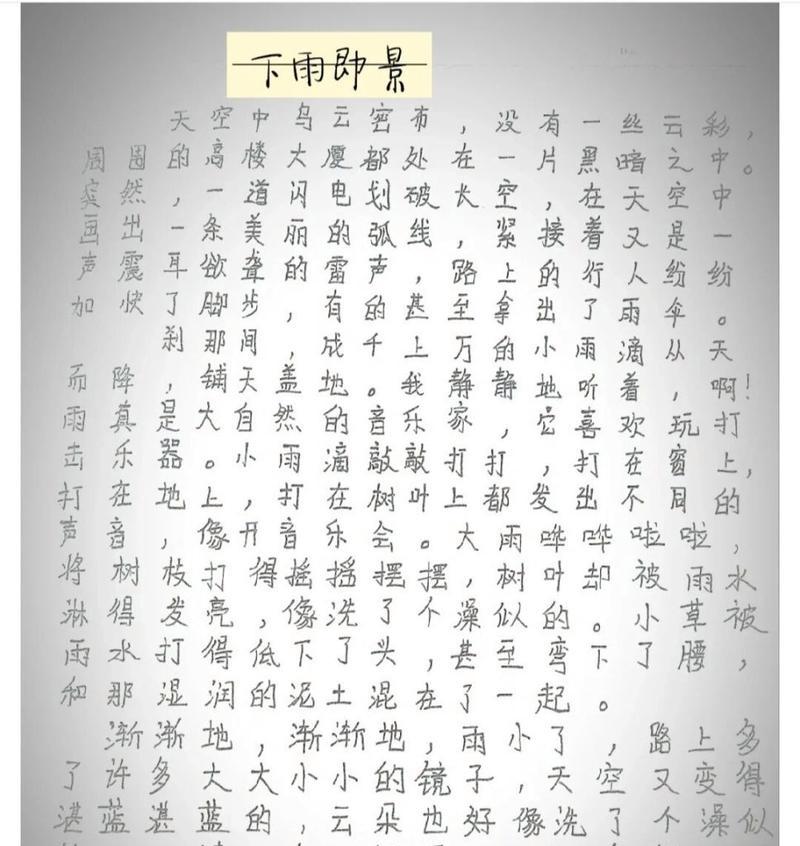 下雨即景
天空中乌云密布，没有一丝云彩，
周围的高楼大厦都处在一片黑暗之中。
突然，一道闪电划破长空，在天空中
画出一条美丽的弧线，紧接着又是一
声震耳欲聋的雷声，路上的行人纷纷
加快了脚步，有的甚至拿出了雨伞。
刹那间，成千上万的小雨滴从天
而降，铺天盖地。我静静地听着，啊！
雨真是大自然的音乐家，它喜欢玩打
击乐器。小雨滴敲敲打打，打在窗上，
打在地上，打在树叶上都发出不同的
声音，像开音乐会。大雨哗哗啦啦，
将树枝打得摇摇摆摆，树叶却被雨水
淋得发亮，像洗了个澡似的。小草被
雨水打得低下了头，甚至弯下了腰，
和那湿润的泥土混在了一起。
渐渐地，渐渐地，雨小了，路上多
了许多大大小小的镜子，天空又变得
湛蓝湛蓝的，云朵也好像洗了个澡似